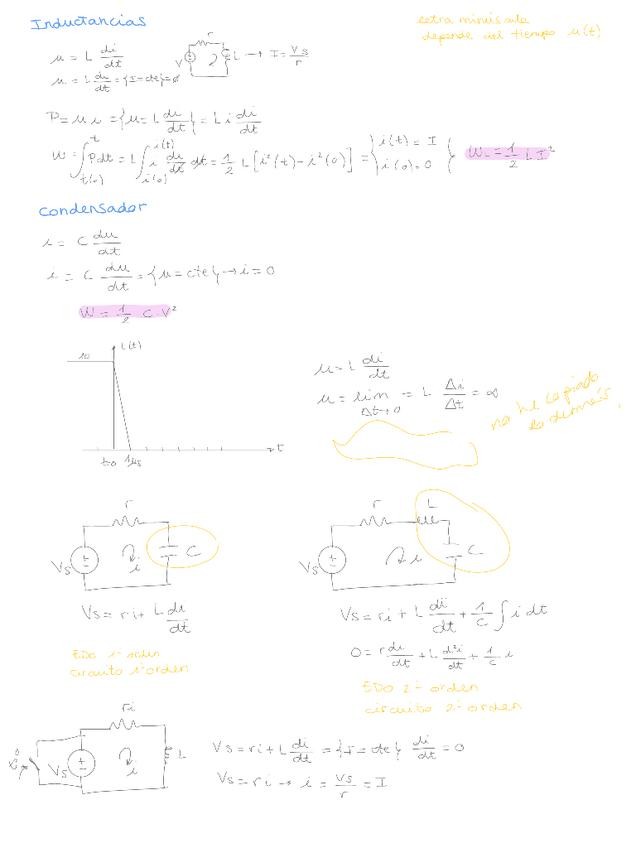 Inductancias
letra minúscula
depende del tiempo u(t)
u = L di/dt
r
V
L → I = Vs/r
u = L di/dt = {I = cte} = 0
P = u i = {u = L di/dt} = L i di/dt
W = ∫ t(0) t P dt = L ∫ i(0) i(t) i di/dt dt = 1/2 L [i²(t) - i²(0)] = { i(t) = I i(0) = 0 } WL = 1/2 L I²
Condensador
i = C du/dt
i = C du/dt = {u = cte} → i = 0
W = 1/2 C V²
i(t)
10
t=0 1μs t
u = L di/dt
u = lim Δt→0 = L Δi/Δt = ∞
no he copiado
lo demás.
r
Vs
i
C
Vs = ri + L di/dt
EDO 1er orden
circuito 1er orden
r
L
Vs
i
C
Vs = ri + L di/dt + 1/C ∫ i dt
0 = r di/dt + L d²i/dt + 1/C i
EDO 2º orden
circuito 2º orden
ri
Vs
i
L
Vs = ri + L di/dt = {I = cte} di/dt = 0
Vs = ri → i = Vs/r = I